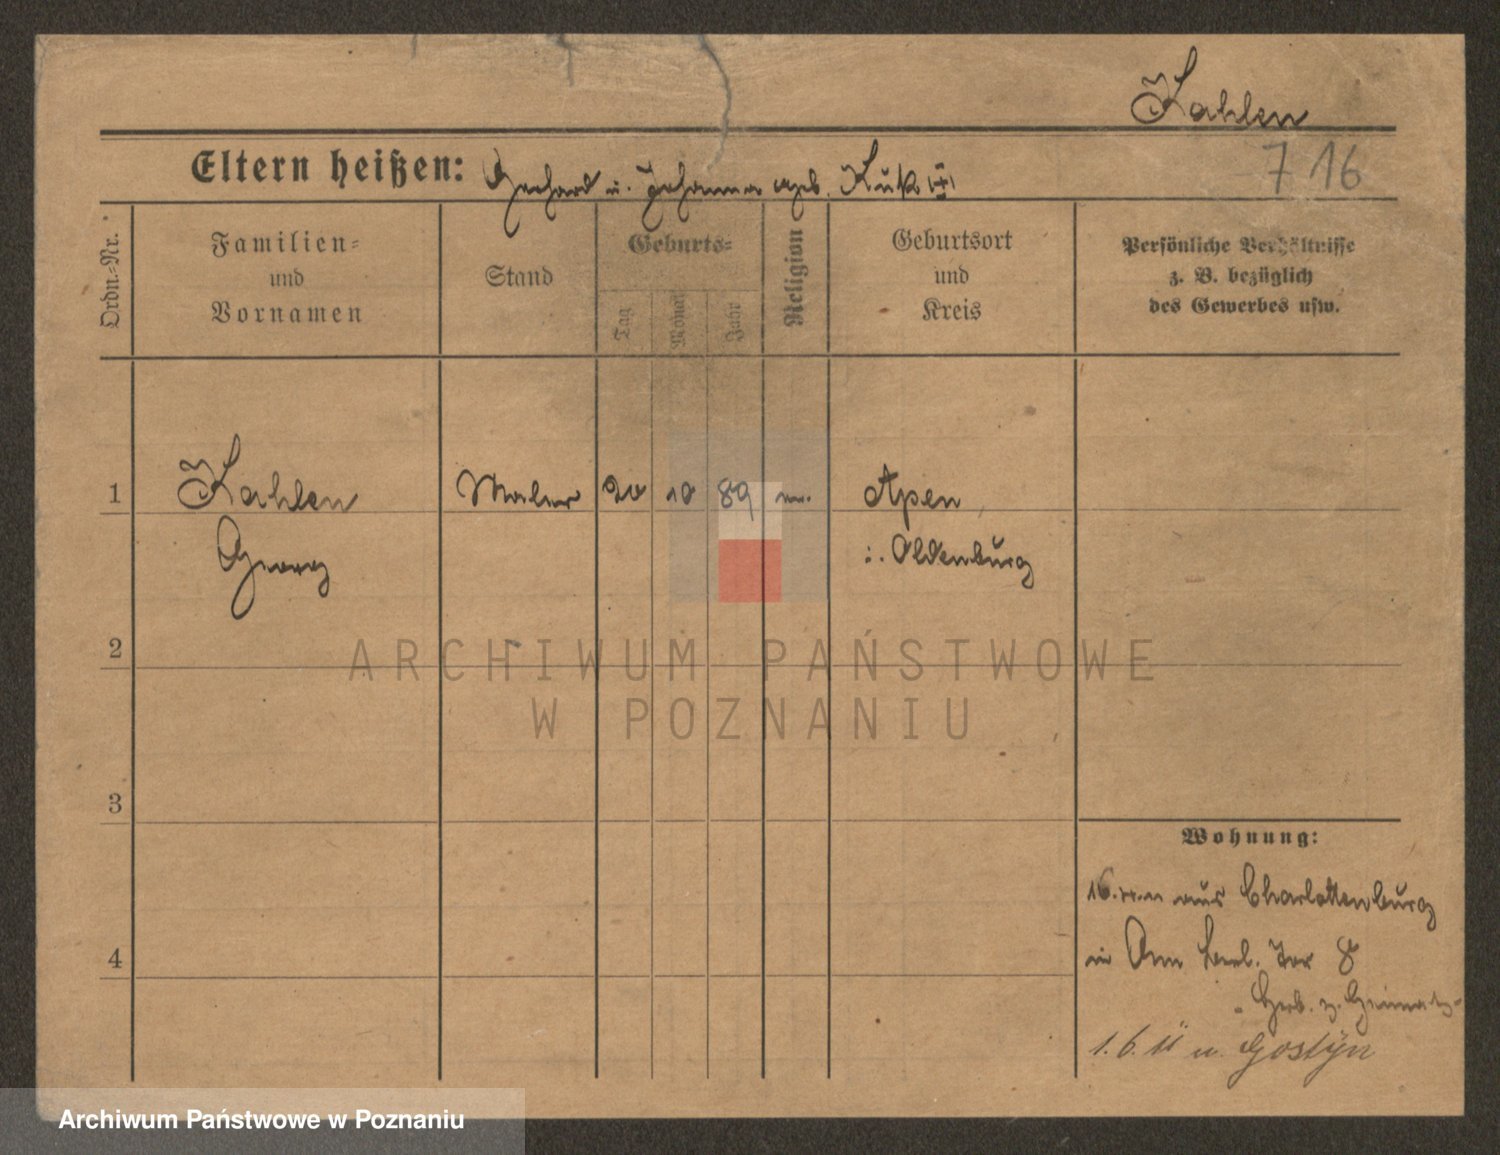 Kahlen
Eltern heißen: Gerhard u. Johanna geb.
7 16
Ordn.=Nr.
Familien=
und
Vornamen
Stand
Geburts=
Tag
Monat
Jahr
Religion
Geburtsort
und
Kreis
Persönliche Verhältnisse
z. B. bezüglich
des Gewerbes usw.
1
Kahlen
Georg
Maler
20
10
89
Apen
i. Oldenburg
2
ARCHIWUM PAŃSTWOWE
W POZNANIU
3
4
Wohnung:
16. aus Charlottenburg
in Am Berl. Tor 8
Herb. z. Heimat
1. 6. 11 n. Gostyn
Archiwum Państwowe w Poznaniu